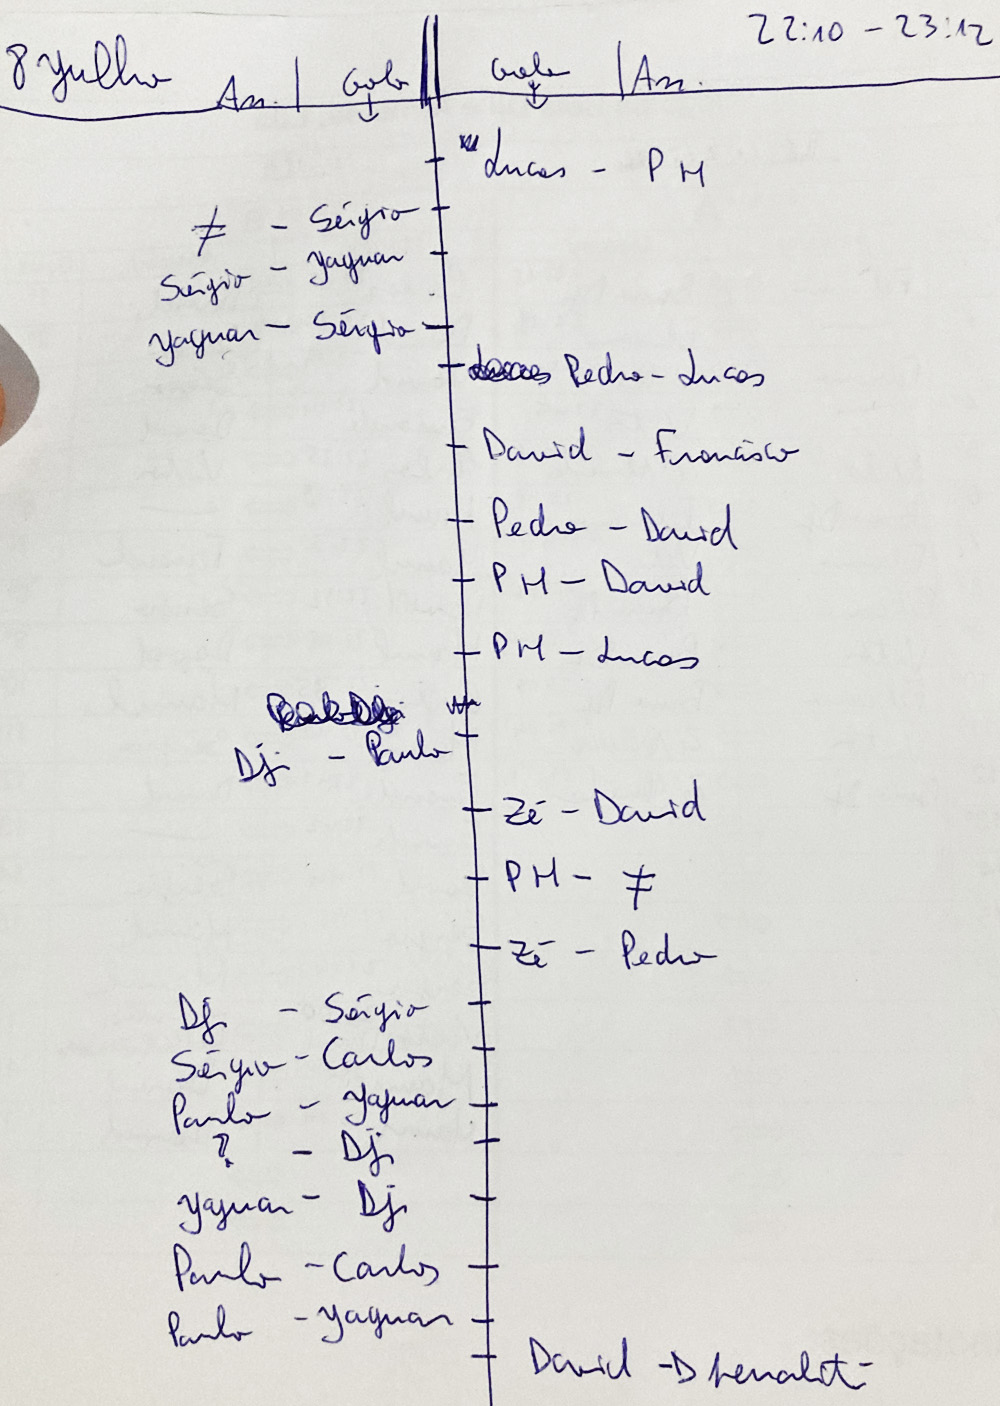 22:10 - 23:12
8 Yulho
Ass. | Golo || Golo | Ass.
Lucas - PH
≠ - Sérgio
Sérgio - Yaguar
Yaguar - Sérgio
Pedro - Lucas
David - Francisco
Pedro - David
PH - David
PH - Lucas
Dj. - Paulo
Zé - David
PH - ≠
Zé - Pedro
Dj. - Sérgio
Sérgio - Carlos
Paulo - Yaguar
? - Dj.
Yaguar - Dj.
Paulo - Carlos
Paulo - Yaguar
David → penalti